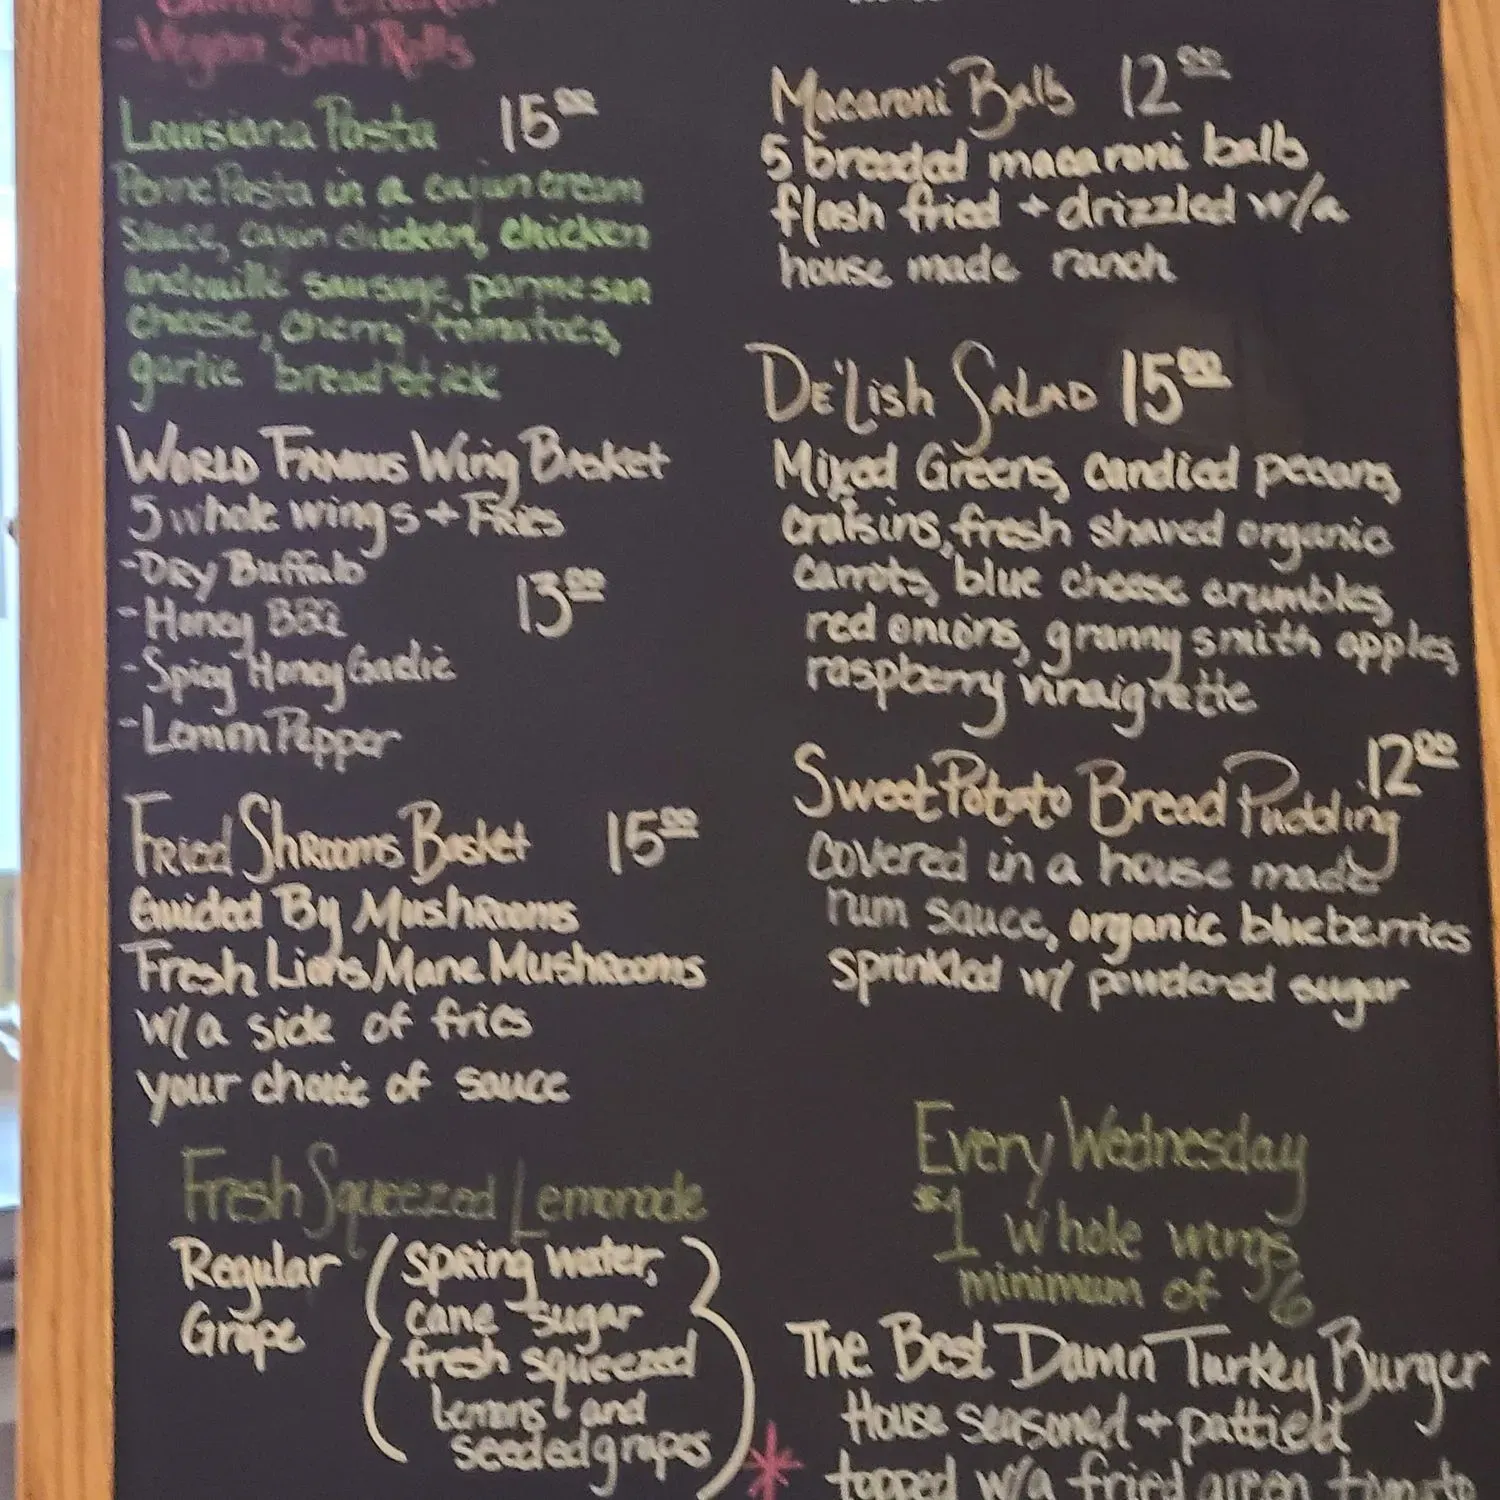 -Vegan Soul Rolls
Louisiana Pasta 15.00
Penne Pasta in a cajun cream
sauce, cajun chicken, chicken
andouille sausage, parmesan
cheese, cherry tomatoes,
garlic breadstick
World Famous Wing Basket
5 whole wings + Fries
-Dry Buffalo
-Honey BBQ 13.00
-Spicy Honey Garlic
-Lemon Pepper
Fried Shrooms Basket 15.00
Guided By Mushrooms
Fresh Lions Mane Mushrooms
w/a side of fries
your choice of sauce
Fresh Squeezed Lemonade
Regular
Grape
(spring water,
cane sugar
fresh squeezed
lemons and
seeded grapes)
Macaroni Balls 12.00
5 breaded macaroni balls
flash fried + drizzled w/a
house made ranch
De'lish Salad 15.00
Mixed Greens, candied pecans,
craisins, fresh shaved organic
carrots, blue cheese crumbles,
red onions, granny smith apples,
raspberry vinaigrette
Sweet Potato Bread Pudding 12.00
covered in a house made
rum sauce, organic blueberries
sprinkled w/ powdered sugar
Every Wednesday
$1 whole wings
minimum of 6
The Best Damn Turkey Burger
House seasoned + pattied
* topped w/a fried green tomato